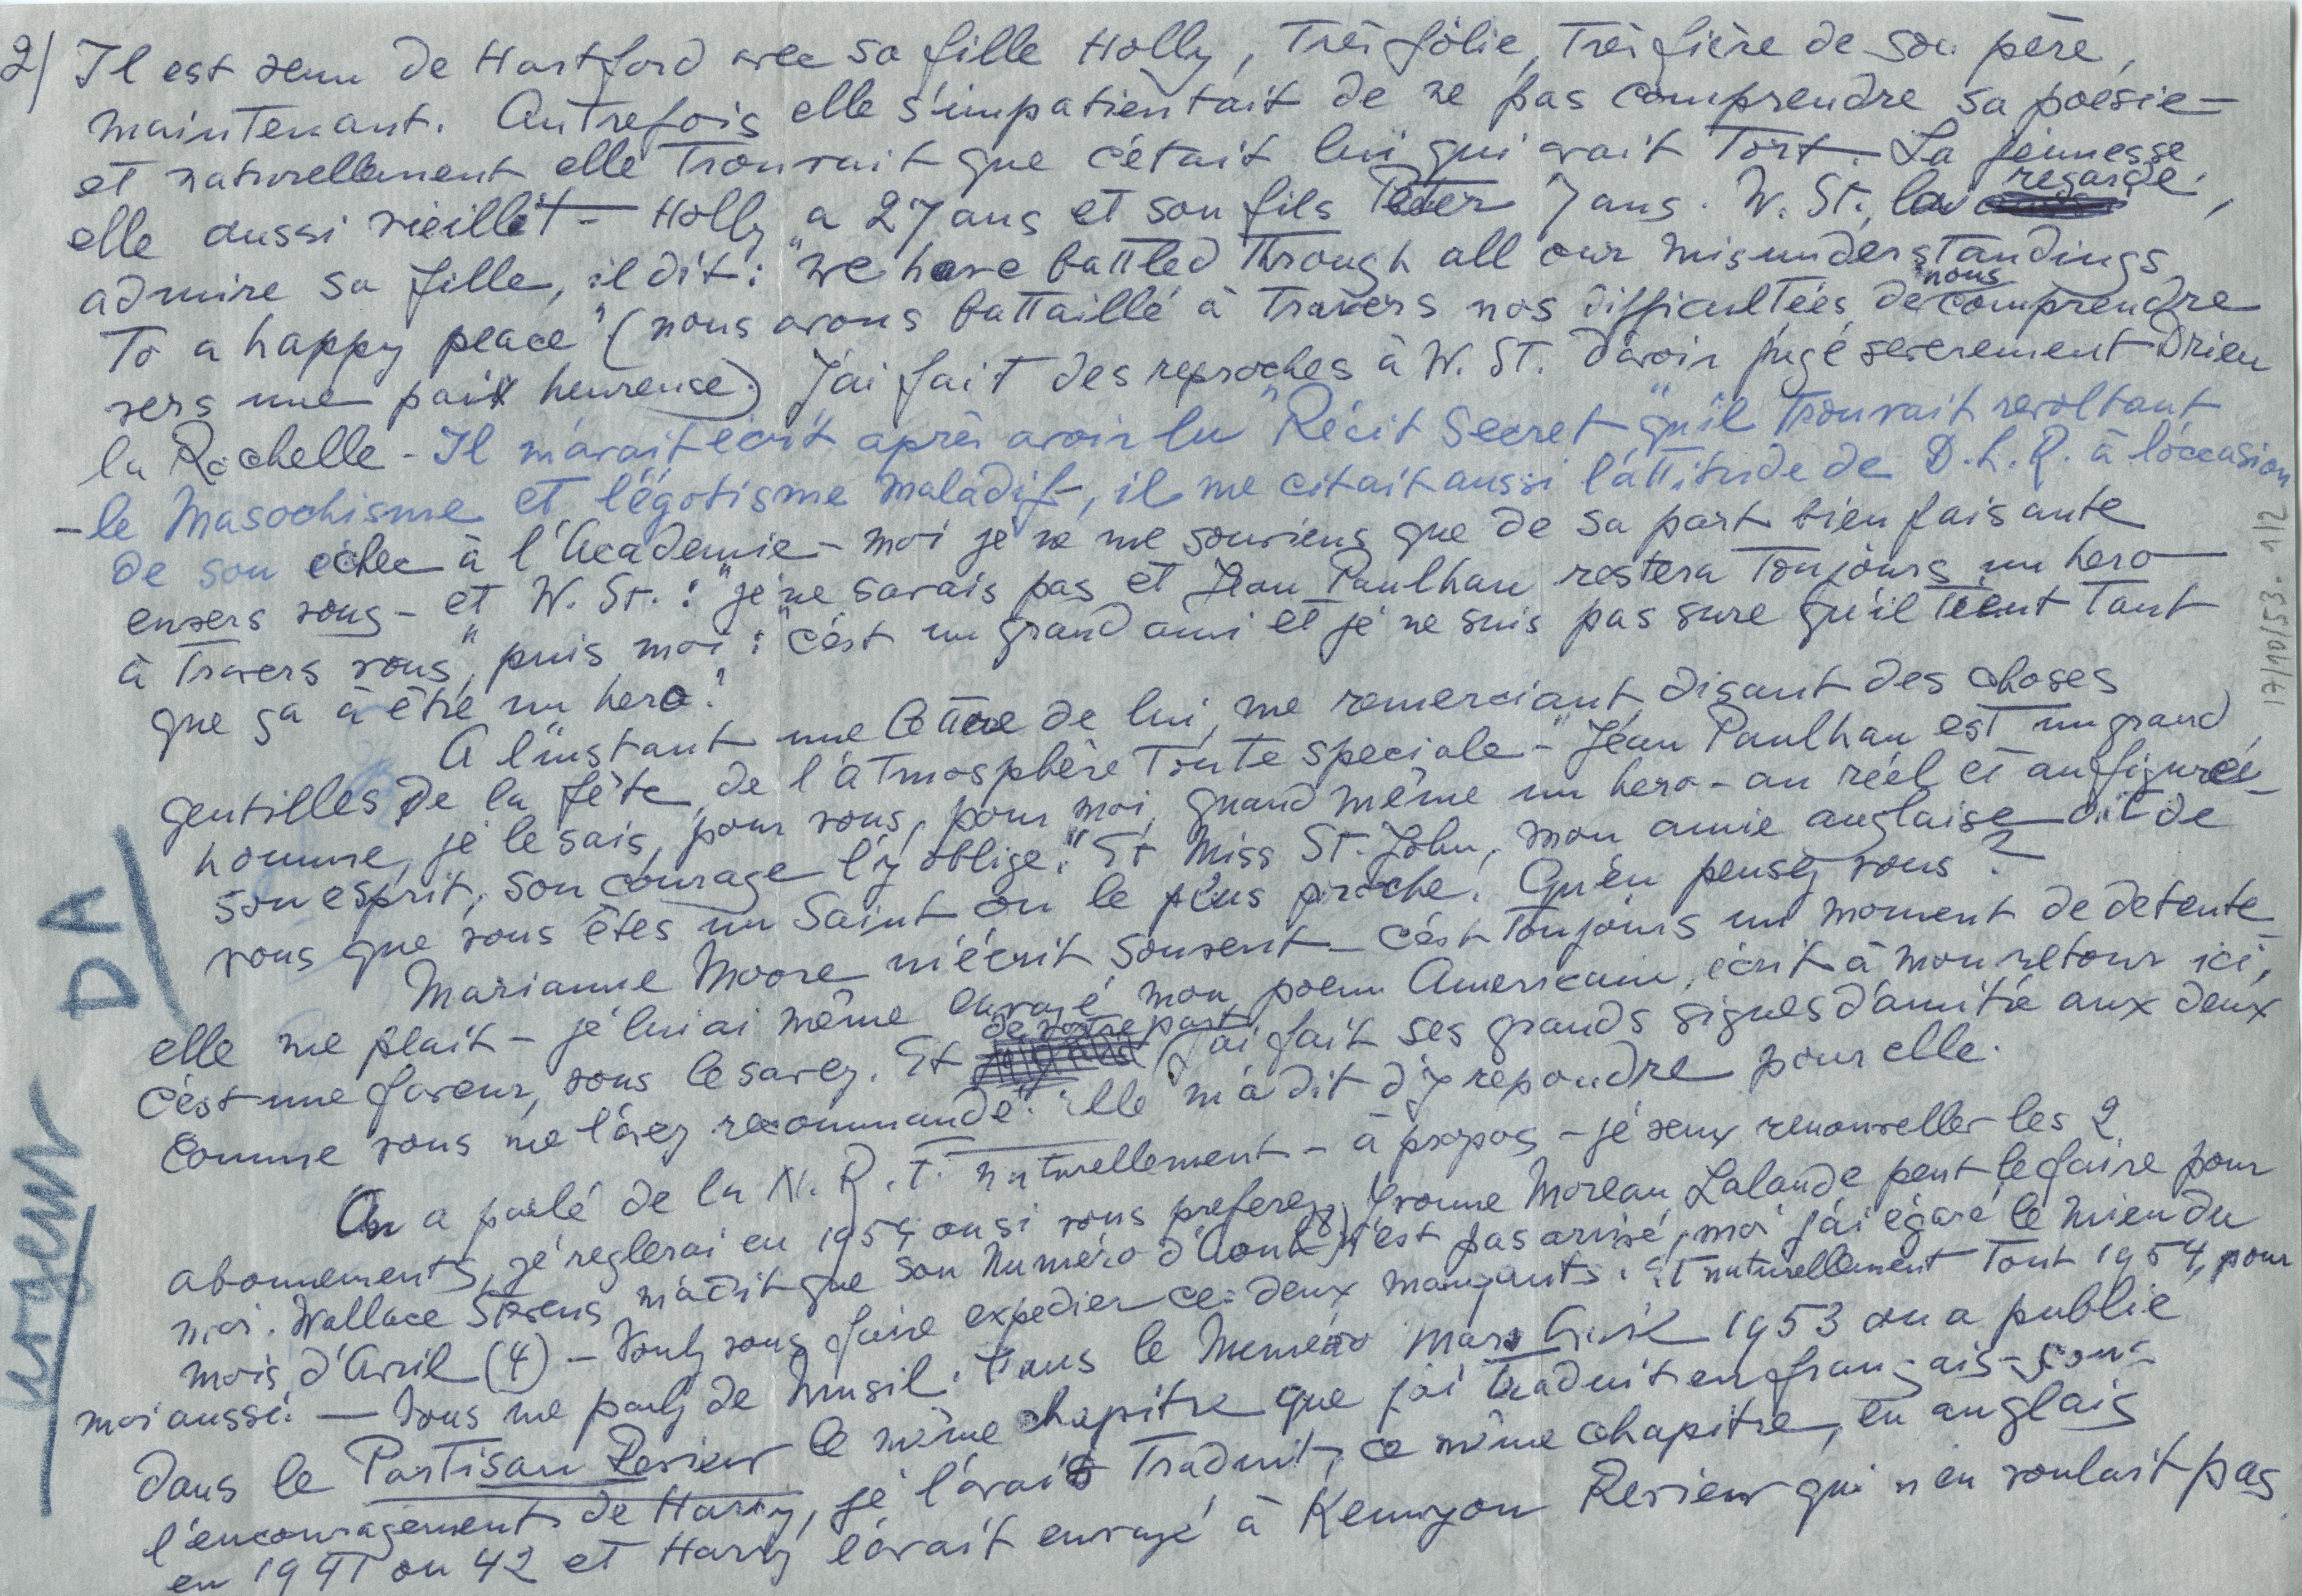 2/ Il est venu de Hartford avec sa fille Holly, Très jolie, Très fière de son père,
maintenant. Autrefois elle s'impatientait de ne pas comprendre sa poésie –
et naturellement elle Trouvait que c'était lui qui avait Tort. La jeunesse
elle aussi vieillit – Holly a 27 ans et son fils Peter 7 ans. W. St. la regarde,
admire sa fille, il dit: "we have battled Through all our misunderstandings
To a happy peace" (nous avons battaillé à Travers nos difficultées de nous comprendre
vers une paix heureuse.) J'ai fait des reproches à W. ST. d'avoir jugé severement Drieu
la Rochelle – Il m'avait écrit après avoir lu "Récit Secret" qu'il Trouvait revoltant
– le Masochisme et l'égotisme maladif –, il me citait aussi l'attitude de D.L.R. à l'occasion
de son echec à l'Academie – moi je ne me souviens que de sa part bienfaisante
envers vous – et W. St.: "je ne savais pas et Jean Paulhan restera Toujours un hero
à Travers vous", puis moi: "c'est un grand ami et je ne suis pas sure qu'il tient Tant
que ça à être un hero."
A l'instant une lettre de lui, me remerciant, disant des choses
gentilles de la fête, de l'atmosphère Toute speciale – "Jean Paulhan est un grand
homme, je le sais, pour vous, pour moi, quand même un hero – au réel et au figuré –
son esprit, son courage l'y oblige." Et Miss St. John, mon amie anglaise dit de
vous que vous êtes un Saint ou le plus proche. Qu'en pensez vous?
Marianne Moore m'écrit souvent – c'est Toujours un moment de detente –
elle me plait – je lui ai même envoyé mon poem Americain, écrit à mon retour ici,
c'est une faveur, vous le savez. Et de votre part j'ai fait ses grands signes d'amitié aux deux
comme vous me l'avez recommandé. Elle m'a dit d'y repondre pour elle.
On a parlé de la N.R.F. naturellement – à propos – je veux renouveller les 2
abonnements, je reglerai en 1954 ou si vous preferez, Yvonne Moreau Lalande peut le faire pour
moi. Wallace Stevens m'a dit que son Numéro d'Aout (8) n'est pas arrivé, moi j'ai égaré le mien du
mois d'Avril (4) – Voulez vous faire expedier ces deux manquants. Et naturellement Tout 1954, pour
moi aussi. – Vous me parlez de Musil. Dans le Numéro Mars Avril 1953 on a publie
dans le Partisan Review le même chapitre que j'ai traduit en français – sous
l'encouragement de Harry, je l'avais Traduit, ce même chapitre, en anglais
en 1941 ou 42 et Harry l'avait envoyé à Kennyon Review qui n'en voulait pas
urgent DA
17/10/53. 1/2